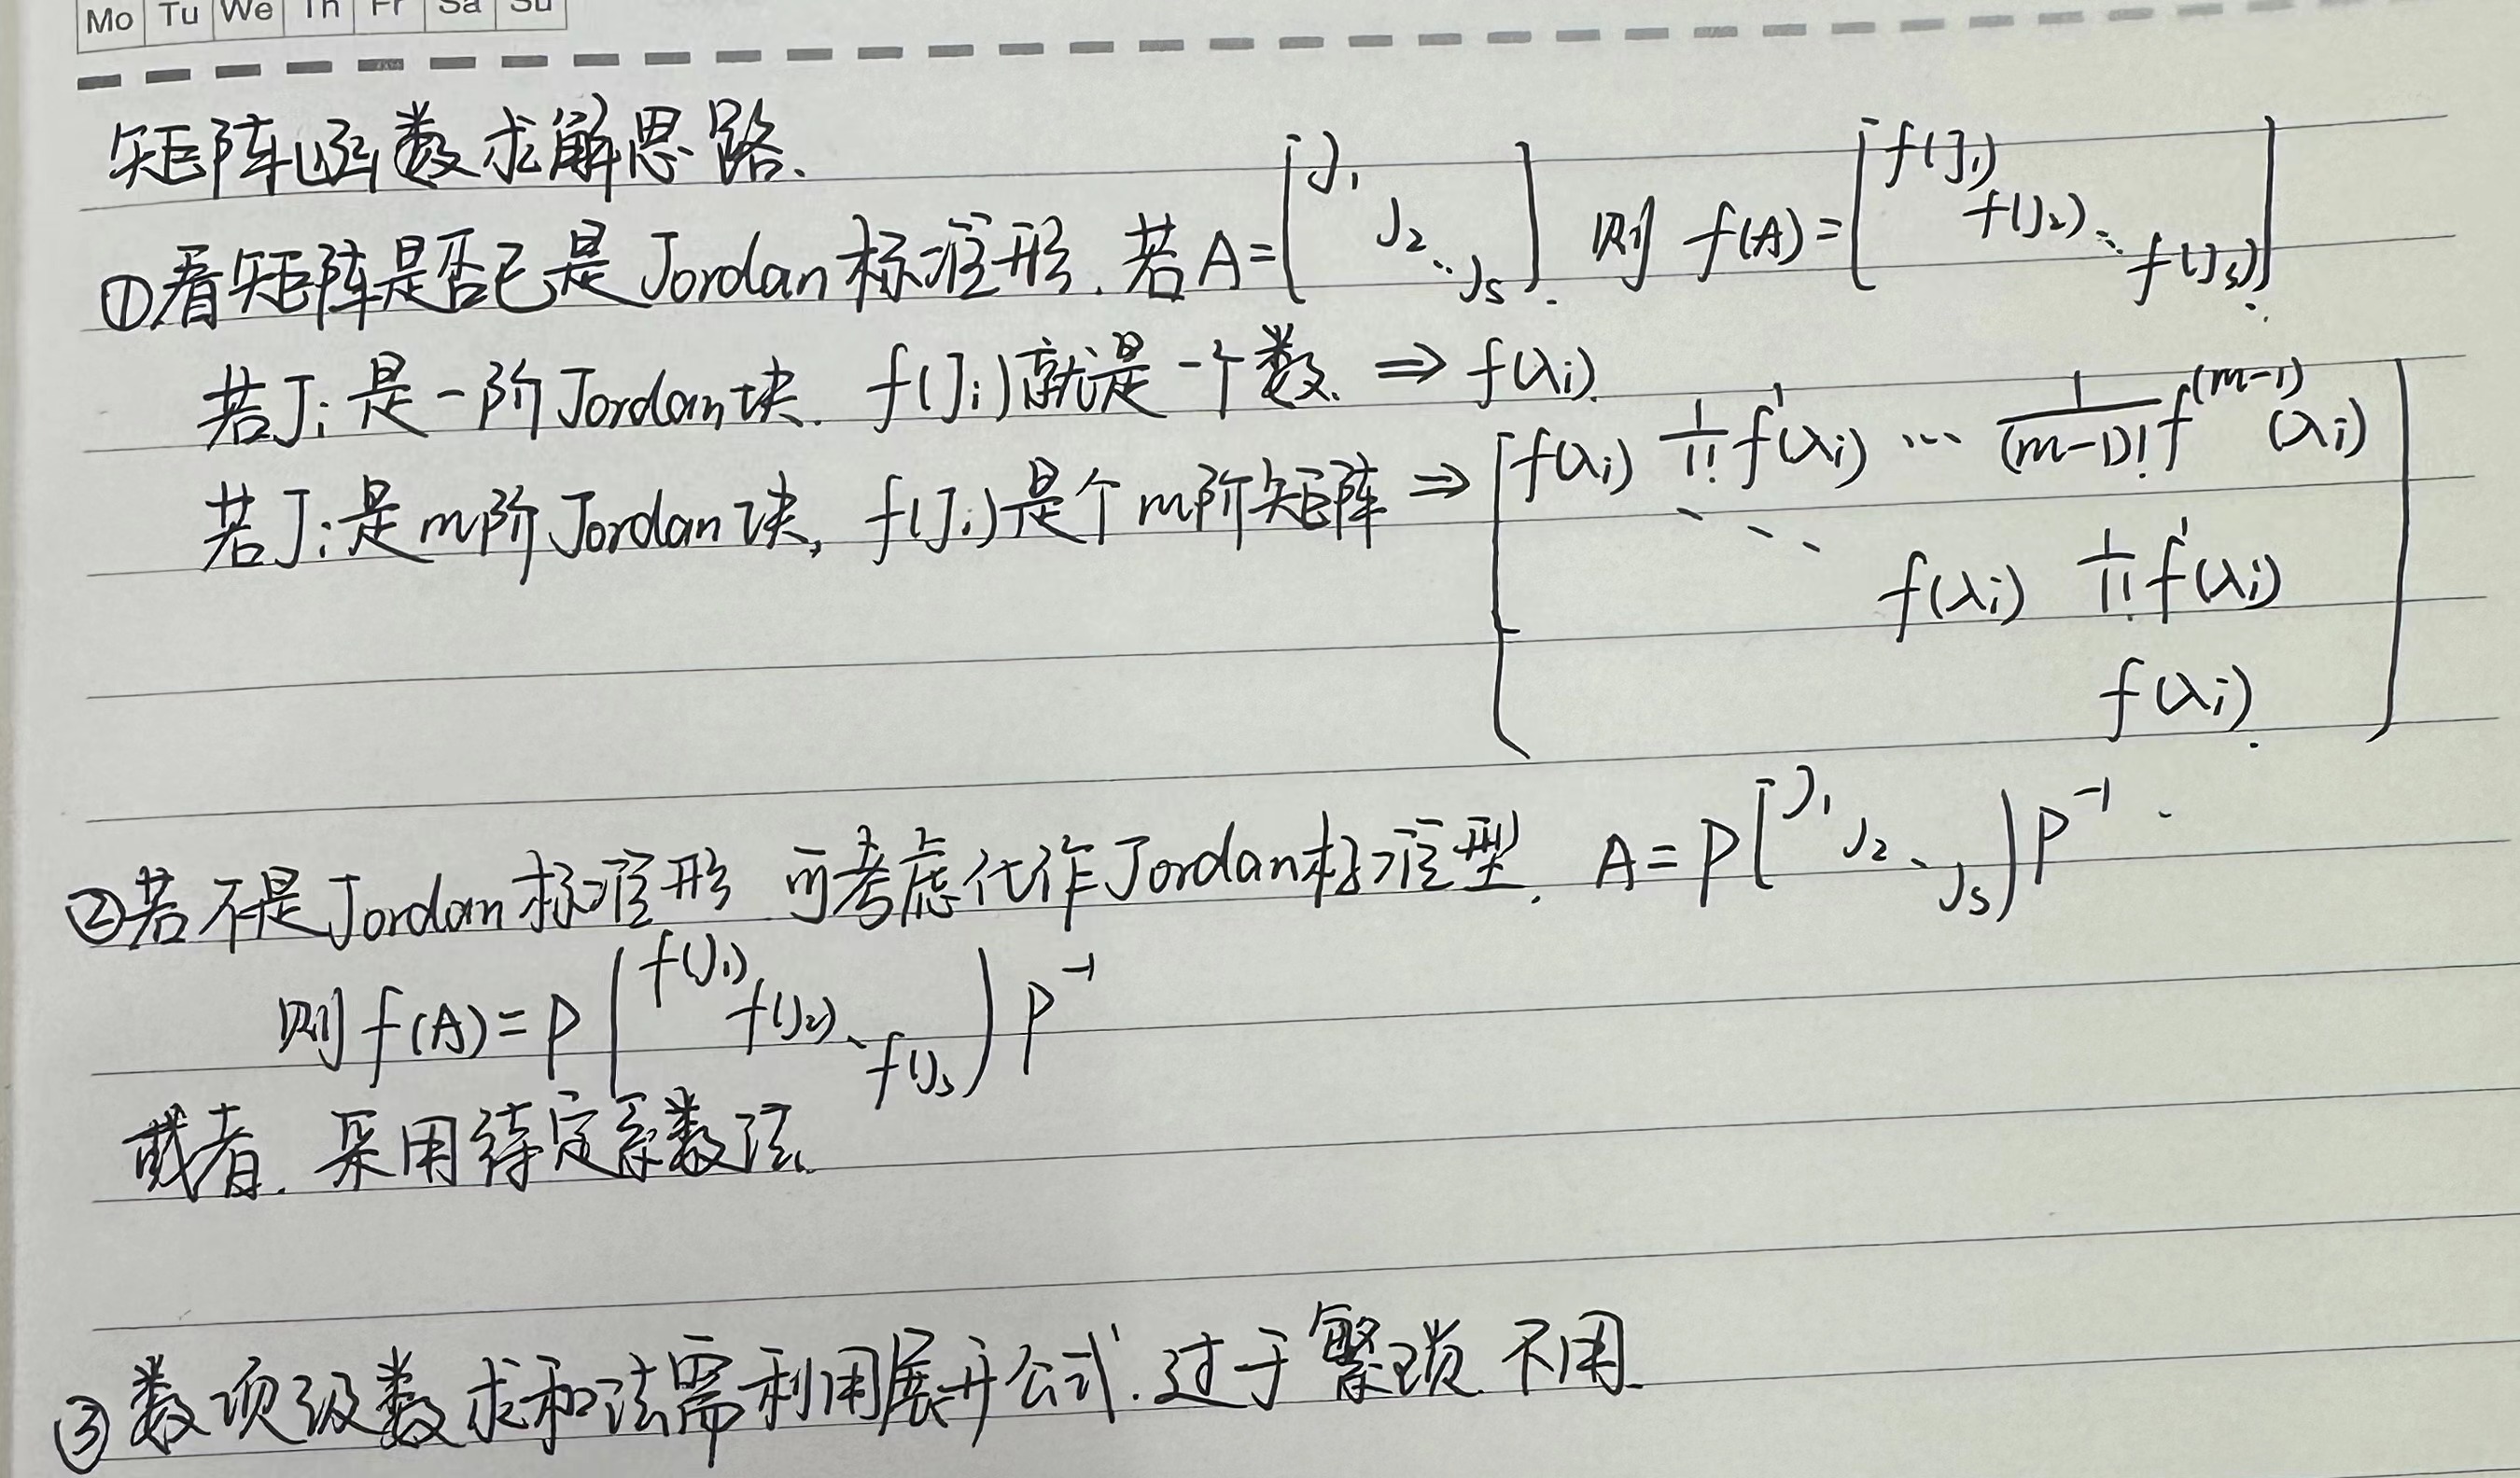 Mo Tu We Th Fr Sa Su
矩阵函数求解思路.
①看矩阵是否已是Jordan标准形. 若A=[J₁ J₂ ⋱ Jₛ]. 则 f(A)=[f(J₁) f(J₂) ⋱ f(Jₛ)].
若Jᵢ是一阶Jordan块. f(Jᵢ)就是一个数. ⇒ f(λᵢ).
若Jᵢ是m阶Jordan块, f(Jᵢ)是个m阶矩阵 ⇒ [f(λᵢ) 1/1! f'(λᵢ) ⋯ 1/(m-1)! f^(m-1)(λᵢ)
⋱ ⋱
f(λᵢ) 1/1! f'(λᵢ)
f(λᵢ).]
②若不是Jordan标准形 可考虑化作Jordan标准型. A=P[J₁ J₂ ⋱ Jₛ]P⁻¹.
则f(A)=P(f(J₁) f(J₂) ⋱ f(Jₛ))P⁻¹
或者. 采用待定系数法.
③数项级数求和法需利用展开公式. 过于繁琐 不用.